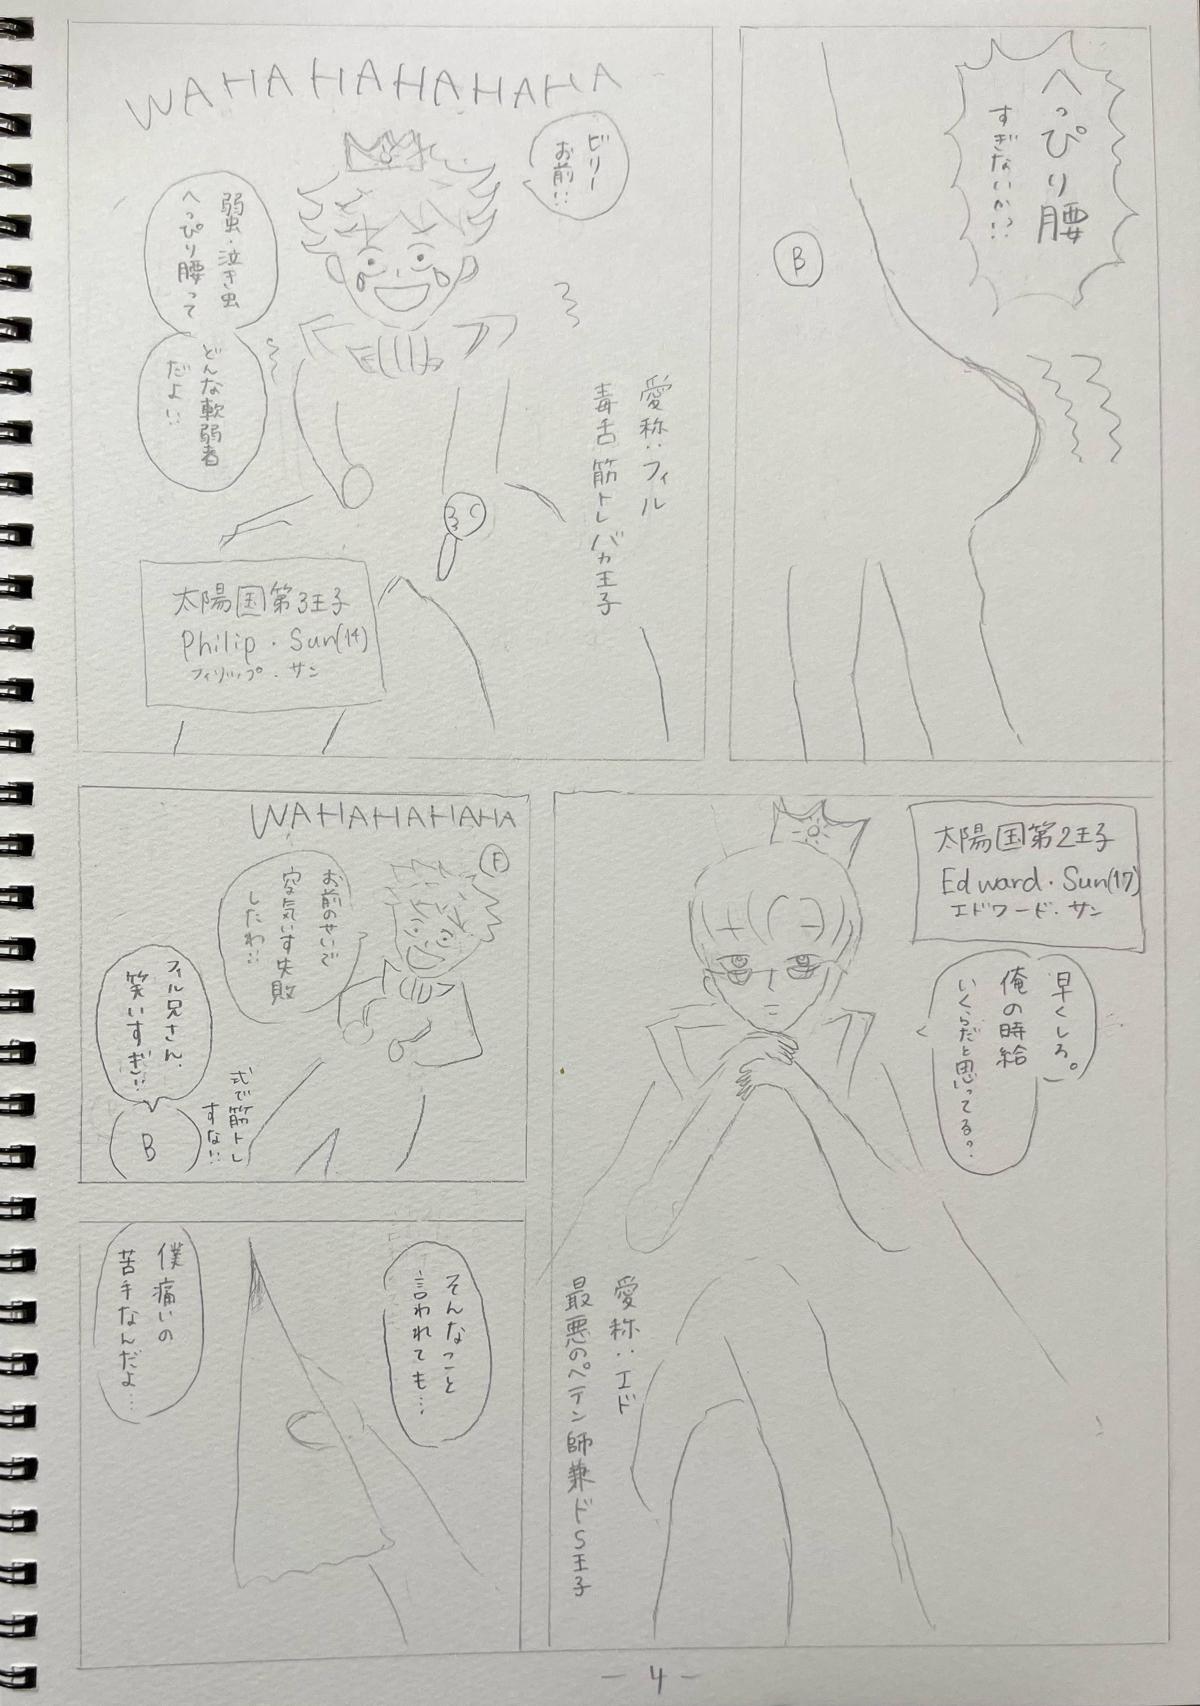 へっぴり腰
すぎないか!?
B
WAHAHAHAHAHA
ビリー
お前!!
弱虫・泣き虫
へっぴり腰って
どんな軟弱者
だよ!!
愛称:フィル
毒舌筋トレバカ王子
太陽国第3王子
Philip・Sun(14)
フィリップ・サン
太陽国第2王子
Edward・Sun(17)
エドワード・サン
早くしろ。
俺の時給
いくらだと思ってる?
愛称:エド
最悪のペテン師兼ドS王子
WAHAHAHAHA
F
お前のせいで
空気いす失敗
したわ!!
フィル兄さん、
笑いすぎ!!
式で筋トレ
すな!!
B
そんなこと
言われても…
僕痛いの
苦手なんだよ…
- 4 -